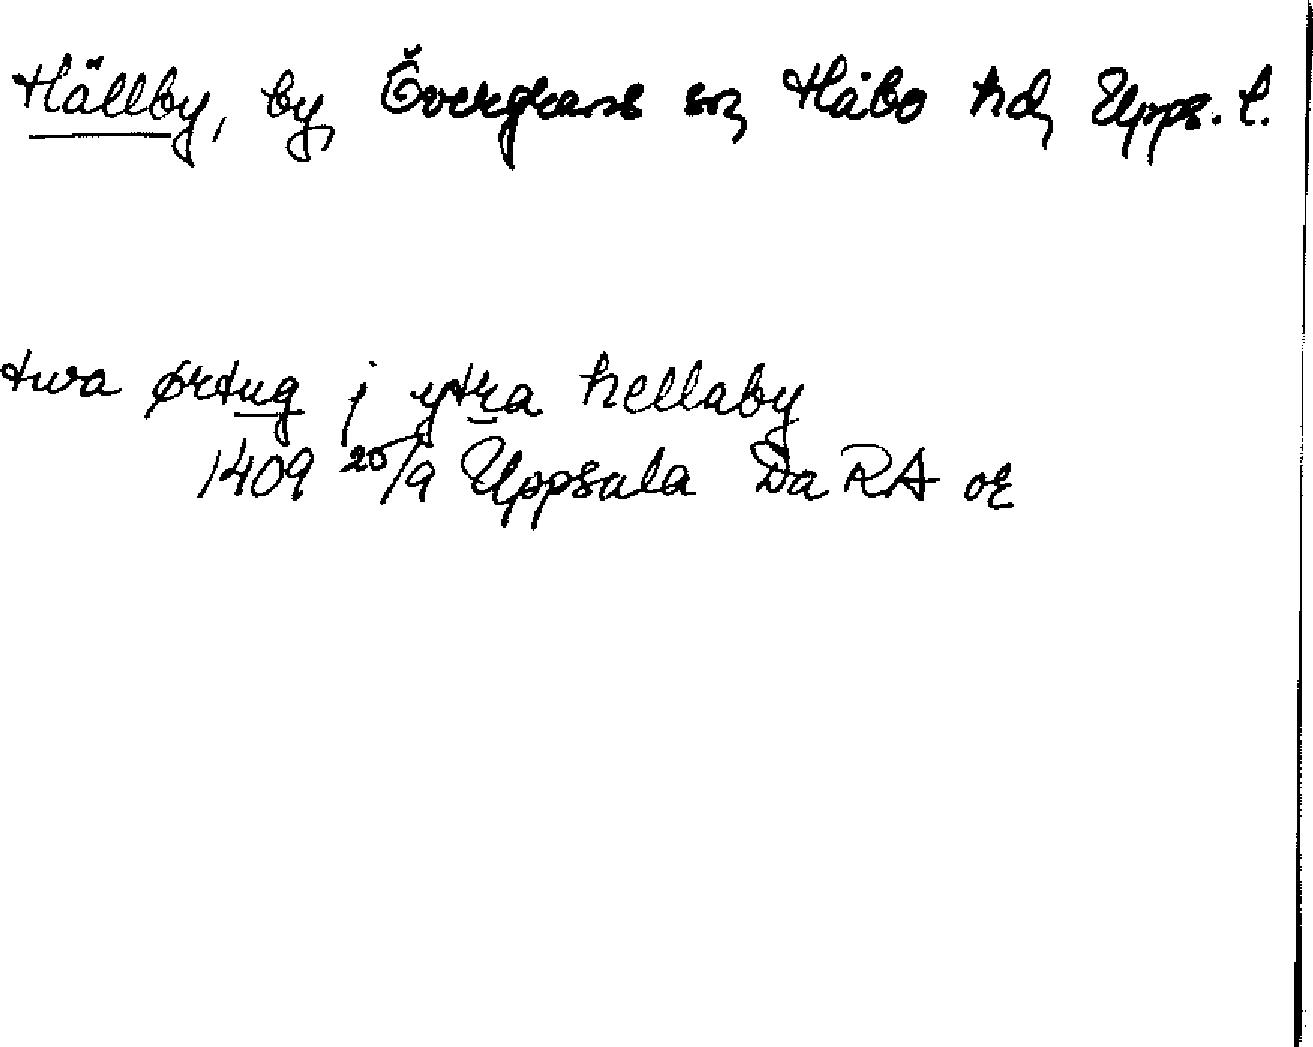 Hällby, by, Övergrans sn, Håbo hd, Upps. l.
twa ørtug j ytra hellaby
1409 25/9 Uppsala Da RA or